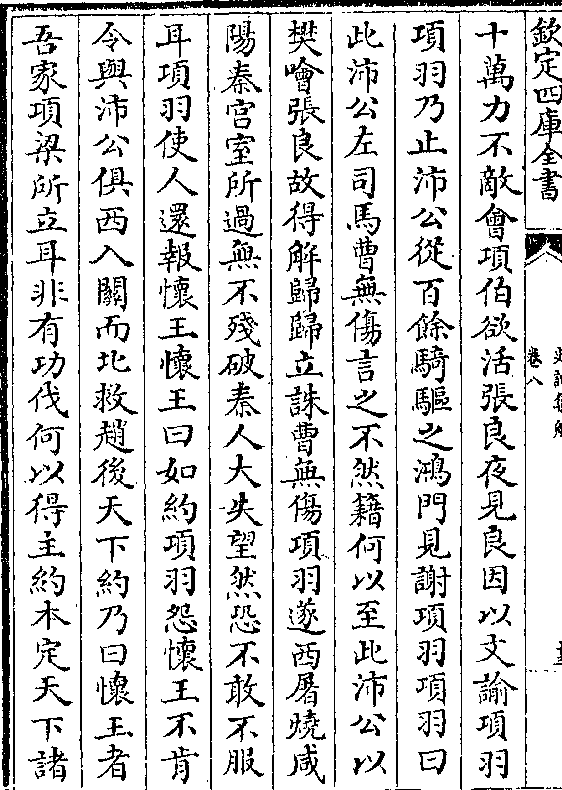 欽定四庫全書
卷八
十萬力不敵會項伯欲活張良夜見良因以文諭項羽
項羽乃止沛公從百餘騎驅之鴻門見謝項羽項羽曰
此沛公左司馬曹無傷言之不然籍何以至此沛公以
樊噲張良故得解歸歸立誅曹無傷項羽遂西屠燒咸
陽秦宮室所過無不殘破秦人大失望然恐不敢不服
耳項羽使人還報懷王懷王曰如約項羽怨懷王不肯
令與沛公俱西入關而北救趙後天下約乃曰懷王者
吾家項梁所立耳非有功伐何以得主約本定天下諸